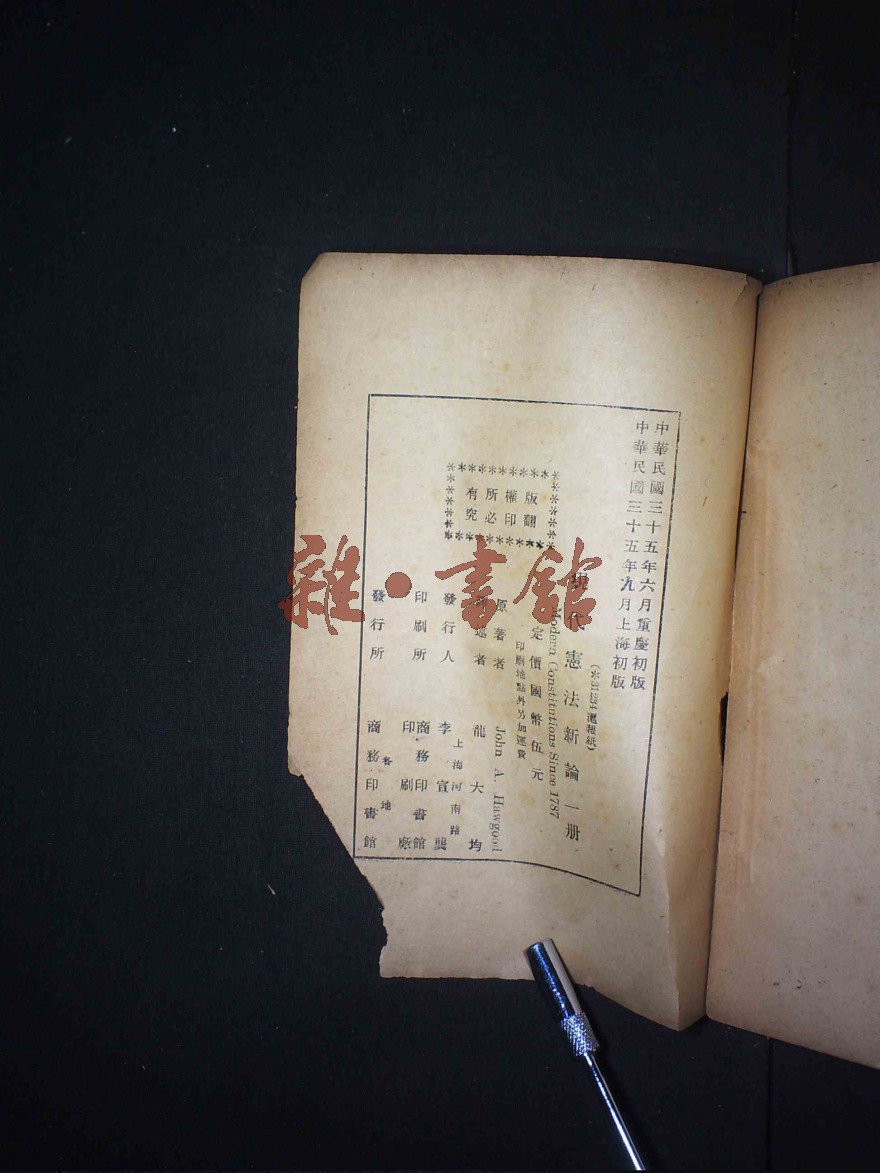 中華民國三十五年六月重慶初版
中華民國三十五年九月上海初版
(※31234滬報紙)
現代憲法新論一册
Modern Constitutions Since 1787
定價國幣伍元
印刷地點外另加運費
版權所有
翻印必究
原著者 John A. Hawgood
述者 龍大均
發行人 李宣龔
上海河南路
印刷所 商務印書館
印刷廠
發行所 商務印書館
各地
雜·書館